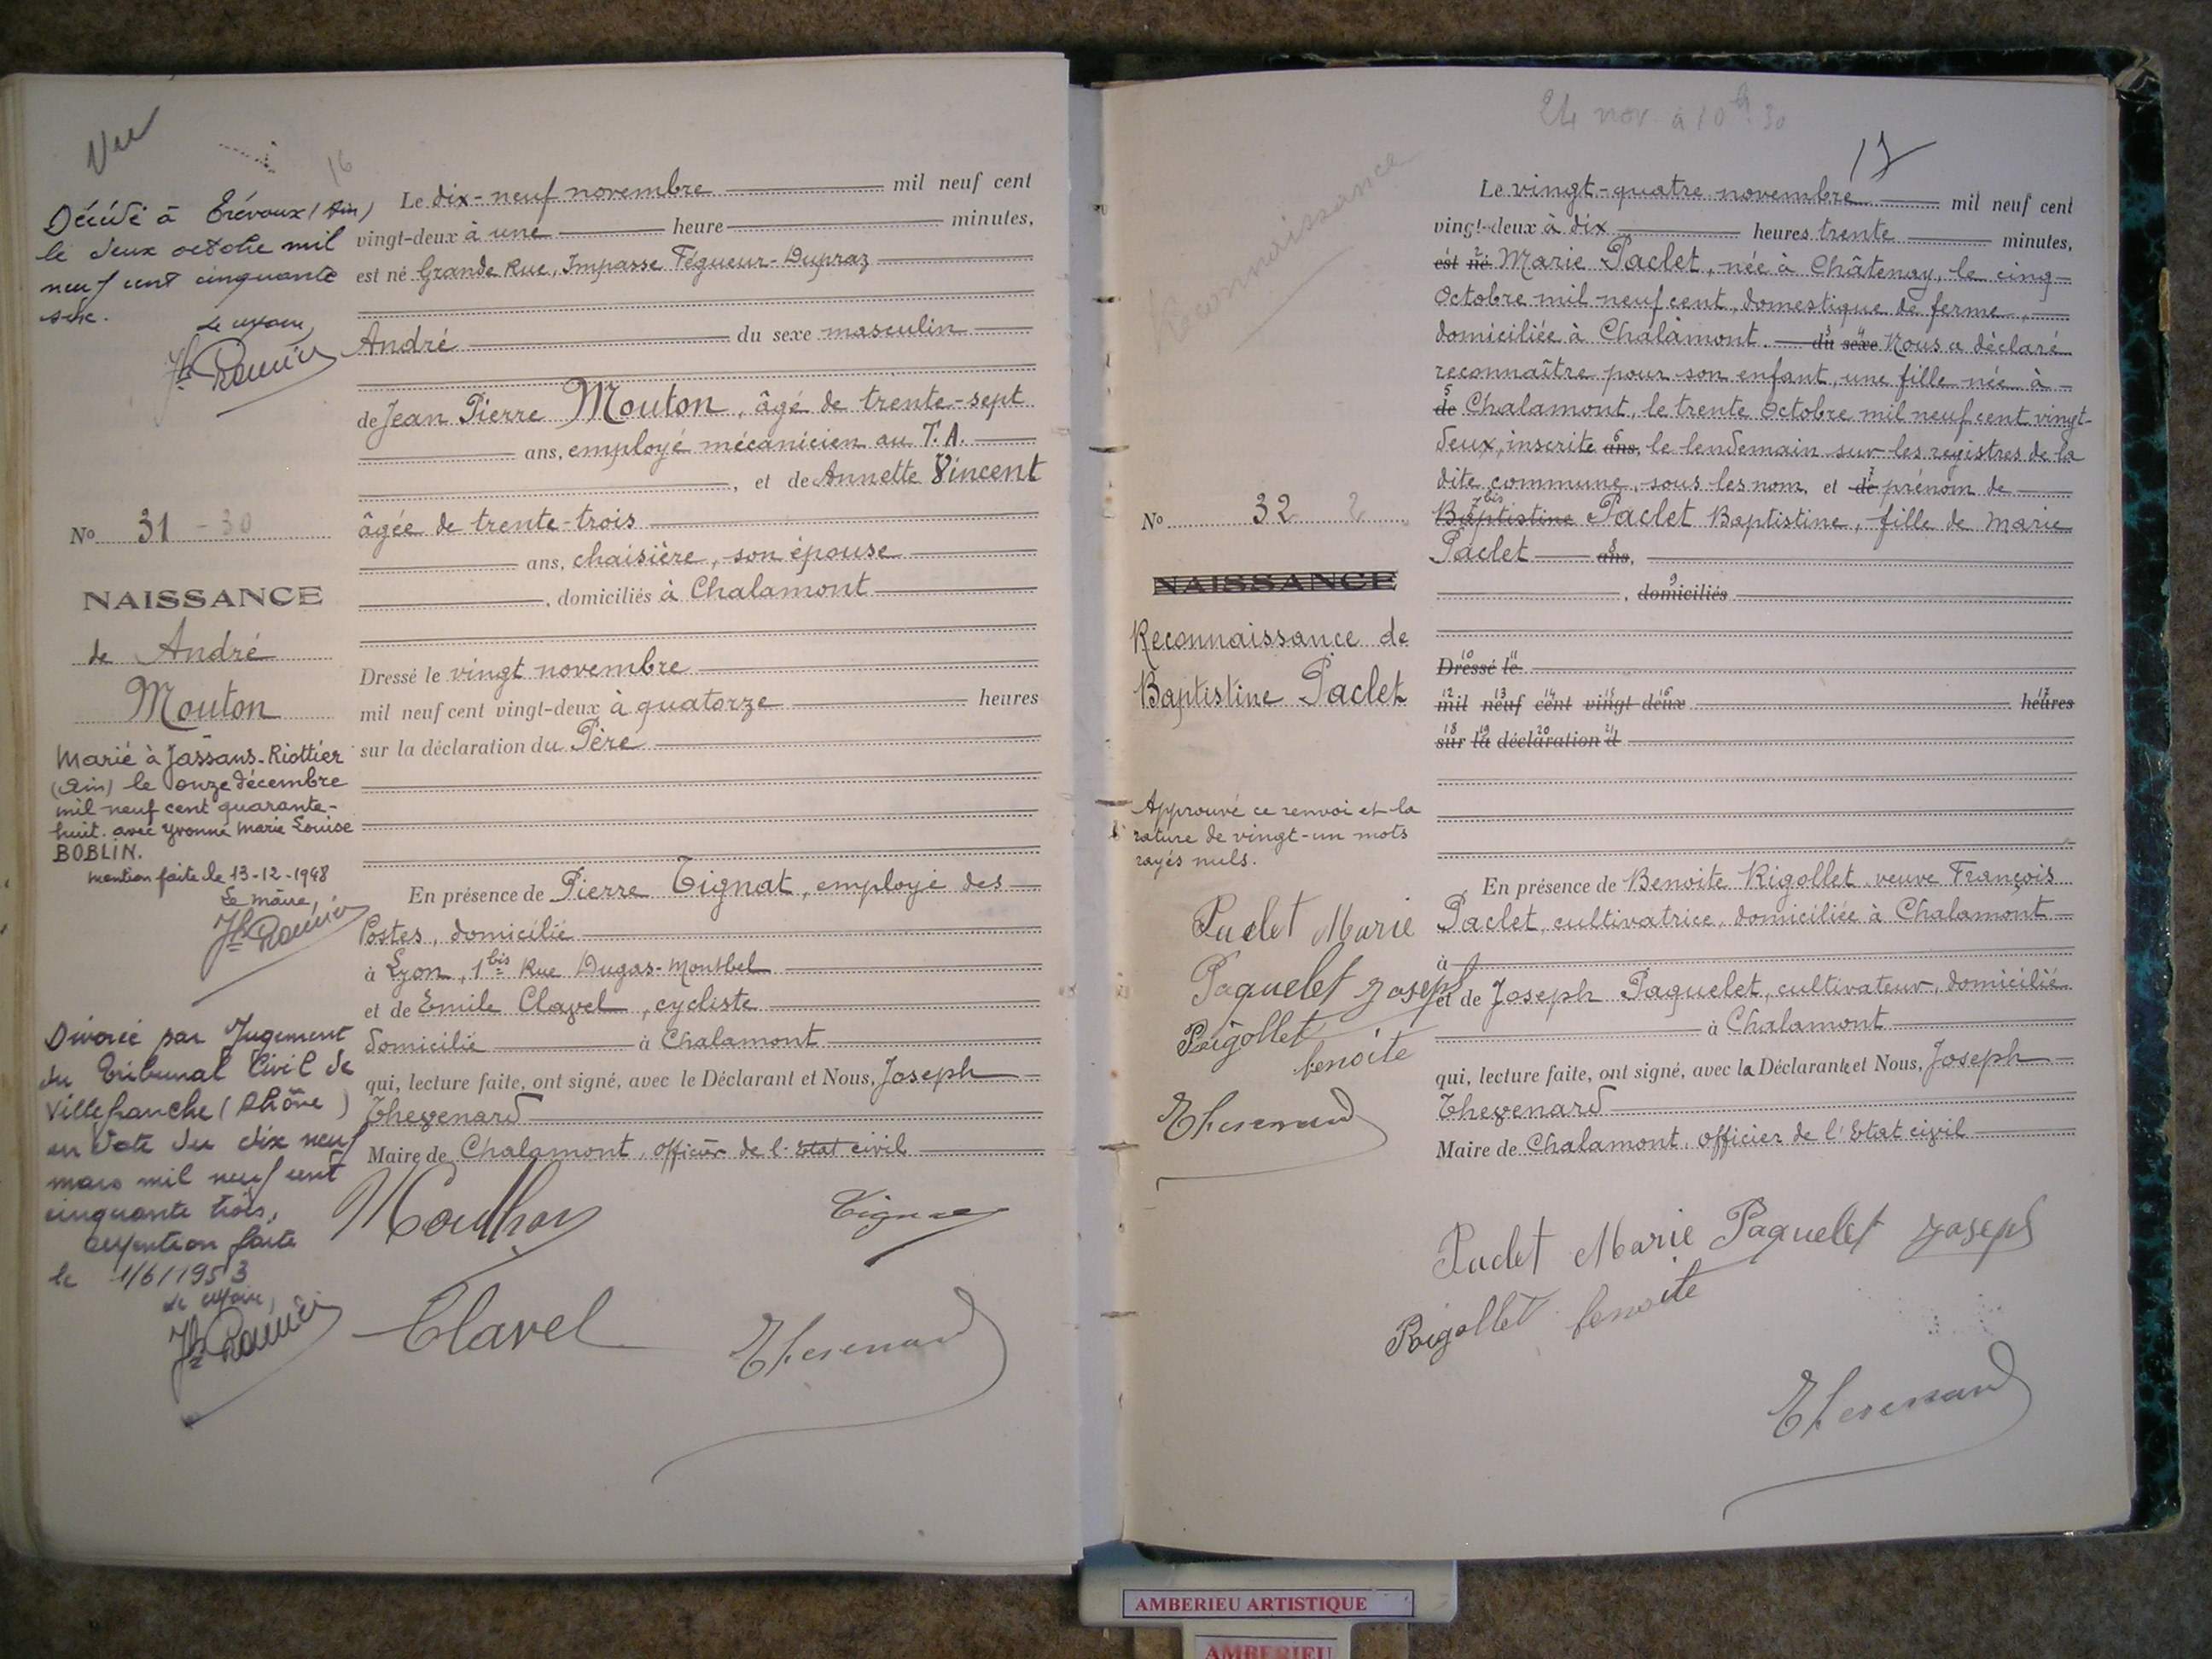 Vu
16
Décédé à Trévoux (Ain)
le deux octobre mil
neuf cent cinquante
six.
Le Maire,
N° 31 - 30
NAISSANCE
de André
Mouton
Marié à Jassans-Riottier
(Ain) le onze décembre
mil neuf cent quarante-
huit avec Yvonne Marie Louise
BOBLIN.
Mention faite le 13-12-1948
Le Maire,
Divorcé par Jugement
du Tribunal Civil de
Villefranche (Rhône)
en date du dix neuf
mars mil neuf cent
cinquante trois.
Mention faite
le 1/6/1953
Le Maire,
Le dix-neuf novembre mil neuf cent
vingt-deux à une heure minutes,
est né Grande Rue, Impasse Fégueur-Dupraz
André du sexe masculin
de Jean Pierre Mouton, âgé de trente-sept
ans, employé mécanicien au T.A.
, et de Annette Vincent
âgée de trente-trois
ans, chaisière, son épouse
, domiciliés à Chalamont
Dressé le vingt novembre
mil neuf cent vingt-deux à quatorze heures
sur la déclaration du Père
En présence de Pierre Tignat, employé des
Postes, domicilié
à Lyon, 1bis Rue Dugas-Montbel
et de Emile Clavel, cycliste
domicilié à Chalamont
qui, lecture faite, ont signé, avec le Déclarant et Nous, Joseph
Thevenard
Maire de Chalamont, officier de l'Etat civil
Mouthon
Clavel
Thevenard
24 nov. à 10h. 30
17
Reconnaissance
N° 32 2
NAISSANCE
Reconnaissance de
Baptistine Paclet
Approuvé ce renvoi et la
rature de vingt-un mots
rayés nuls.
Paclet Marie
Paquelet Joseph
Rigollet
benoite
Thevenard
Le vingt-quatre novembre mil neuf cent
vingt-deux à dix heures trente minutes,
est né Marie Paclet, née à Châtenay, le cinq
Octobre mil neuf cent, domestique de ferme,
domiciliée à Chalamont. du sexe Nous a déclaré
reconnaître pour son enfant, une fille née à
de Chalamont, le trente Octobre mil neuf cent vingt-
deux, inscrite ans, le lendemain sur les registres de la
dite commune, sous les nom, et de prénom de
Baptistine Paclet Baptistine, fille de Marie
Paclet ans,
, domiciliés
Dressé le
mil neuf cent vingt deux heures
sur la déclaration d
En présence de Benoite Rigollet veuve François
Paclet, cultivatrice, domiciliée à Chalamont
à
et de Joseph Paquelet, cultivateur, domicilié
à Chalamont
qui, lecture faite, ont signé, avec la Déclarante et Nous, Joseph
Thevenard
Maire de Chalamont, officier de l'Etat civil
Paclet Marie Paquelet Joseph
Rigollet benoite
Thevenard
AMBERIEU ARTISTIQUE
AMBERIEU